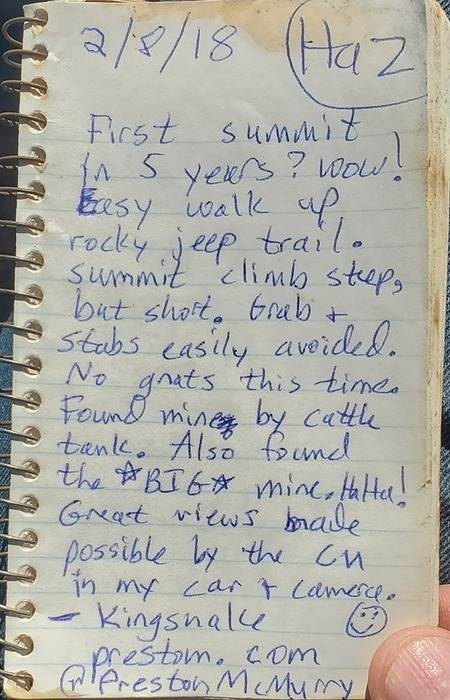 2/8/18 Haz
First summit
in 5 years? wow!
Easy walk up
rocky jeep trail.
summit climb steep,
but short. Grab +
stabs easily avoided.
No gnats this time.
Found mine by cattle
tank. Also found
the ☆BIG☆ mine. HaHa!
Great views made
possible by the Cu
in my car + camera.
- Kingsnake ☺
prestonm.com
@PrestonMcMurry